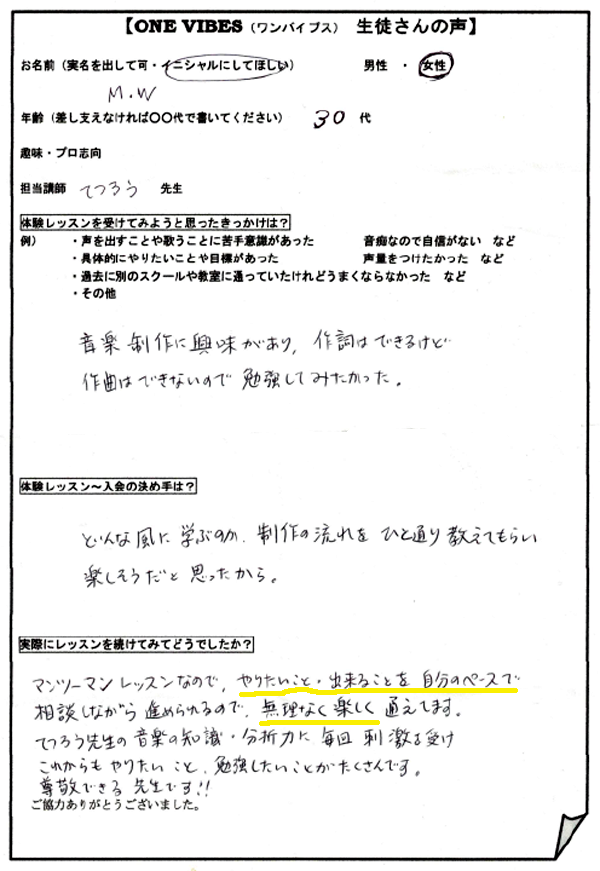 【ONE VIBES（ワンバイブス） 生徒さんの声】
お名前（実名を出して可・イニシャルにしてほしい） 男性 ・ 女性
M.W
年齢（差し支えなければ〇〇代で書いてください） 30 代
趣味・プロ志向
担当講師 てつろう 先生
体験レッスンを受けてみようと思ったきっかけは？
例） ・声を出すことや歌うことに苦手意識があった 音痴なので自信がない など
・具体的にやりたいことや目標があった 声量をつけたかった など
・過去に別のスクールや教室に通っていたけれどうまくならなかった など
・その他
音楽制作に興味があり、作詞はできるけど
作曲はできないので勉強してみたかった。
体験レッスン～入会の決め手は？
どんな風に学ぶのか、制作の流れをひと通り教えてもらい
楽しそうだと思ったから。
実際にレッスンを続けてみてどうでしたか？
マンツーマンレッスンなので、やりたいこと・出来ることを自分のペースで
相談しながら進められるので、無理なく楽しく通えてます。
てつろう先生の音楽の知識・分析力に毎回刺激を受け
これからもやりたいこと、勉強したいことがたくさんです。
尊敬できる先生です!!
ご協力ありがとうございました。